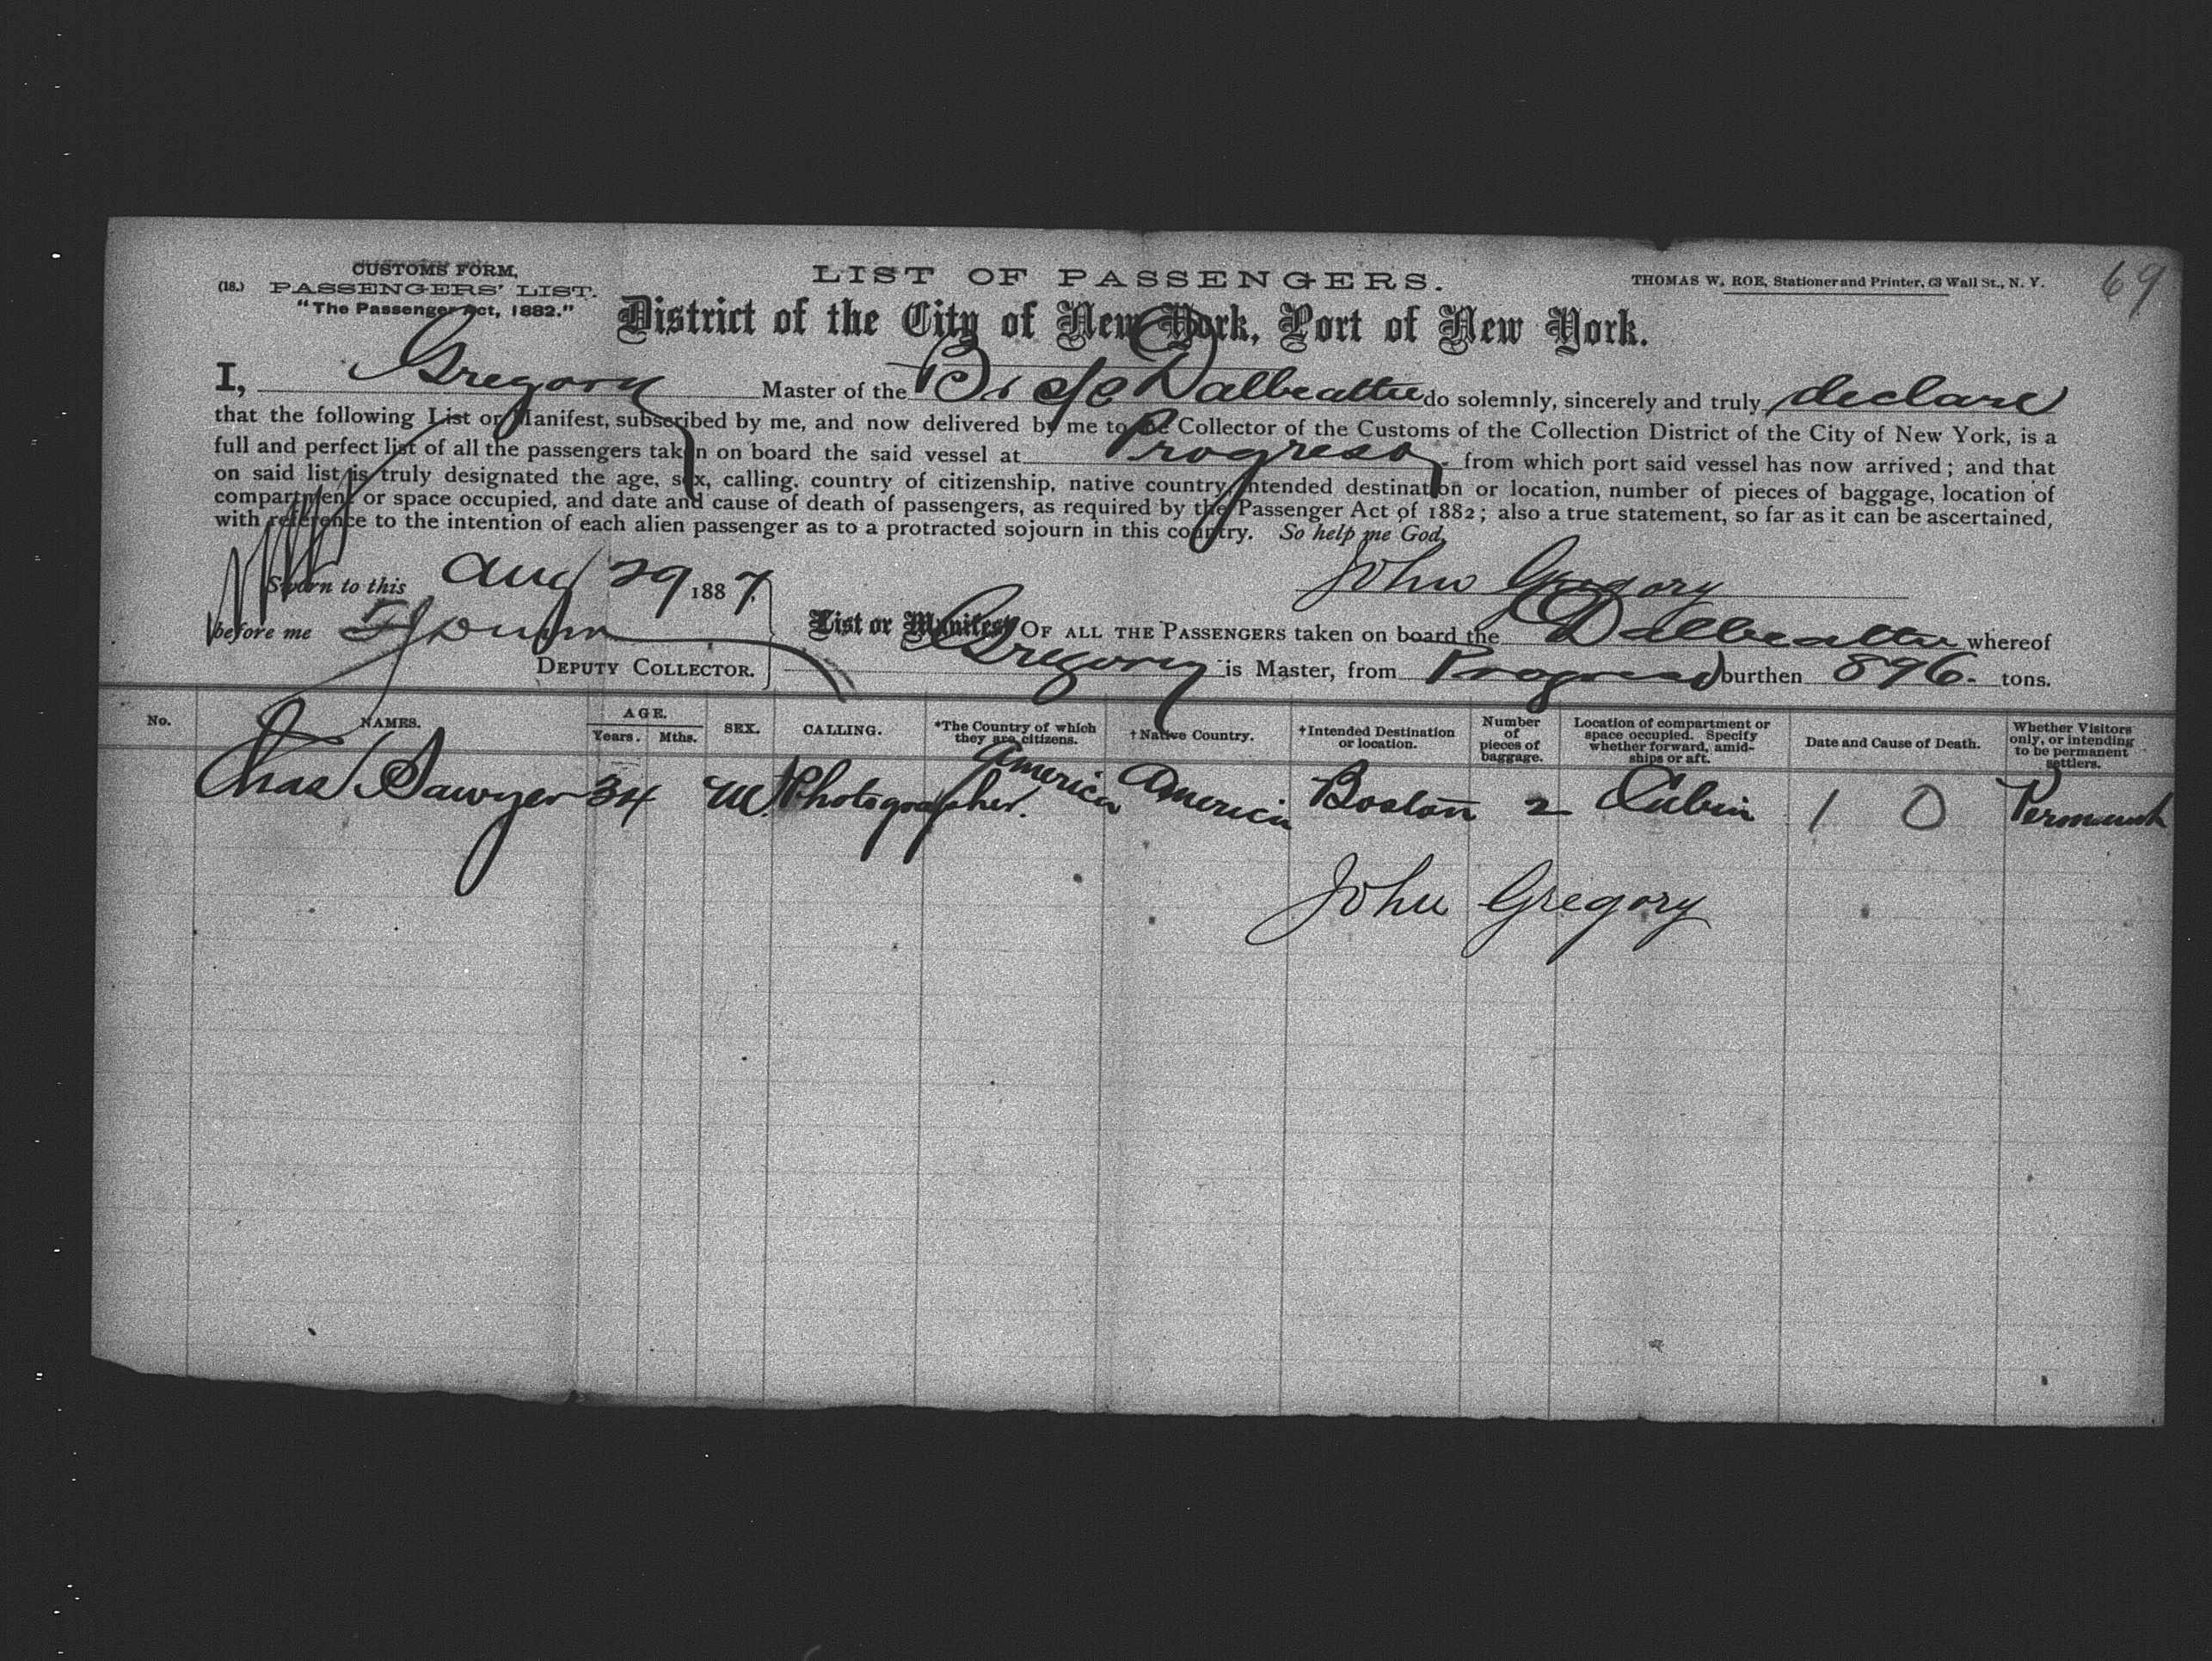 CUSTOMS FORM,
(18.) PASSENGERS' LIST.
"The Passenger Act, 1882."
LIST OF PASSENGERS.
THOMAS W. ROE, Stationer and Printer, 63 Wall St., N. Y.
69
District of the City of New York, Port of New York.
I, Gregory Master of the Br S/S Dalbeattie do solemnly, sincerely and truly declare
that the following List or Manifest, subscribed by me, and now delivered by me to the Collector of the Customs of the Collection District of the City of New York, is a
full and perfect list of all the passengers taken on board the said vessel at Progreso from which port said vessel has now arrived; and that
on said list is truly designated the age, sex, calling, country of citizenship, native country, intended destination or location, number of pieces of baggage, location of
compartment or space occupied, and date and cause of death of passengers, as required by the Passenger Act of 1882; also a true statement, so far as it can be ascertained,
with reference to the intention of each alien passenger as to a protracted sojourn in this country. So help me God.
Sworn to this Aug 29 1887.
John Gregory
before me
List or Manifest OF ALL THE PASSENGERS taken on board the Dalbeattie whereof
DEPUTY COLLECTOR.
Gregory is Master, from Progreso burthen 896. tons.
No. NAMES. AGE. Years. Mths. SEX. CALLING. *The Country of which they are citizens. †Native Country. †Intended Destination or location. Number of pieces of baggage. Location of compartment or space occupied. Specify whether forward, amidships or aft. Date and Cause of Death. Whether Visitors only, or intending to be permanent settlers.
Chas Sawyer 34 M. Photographer. America America Boston 2 Cabin 1 0 Permanent
John Gregory